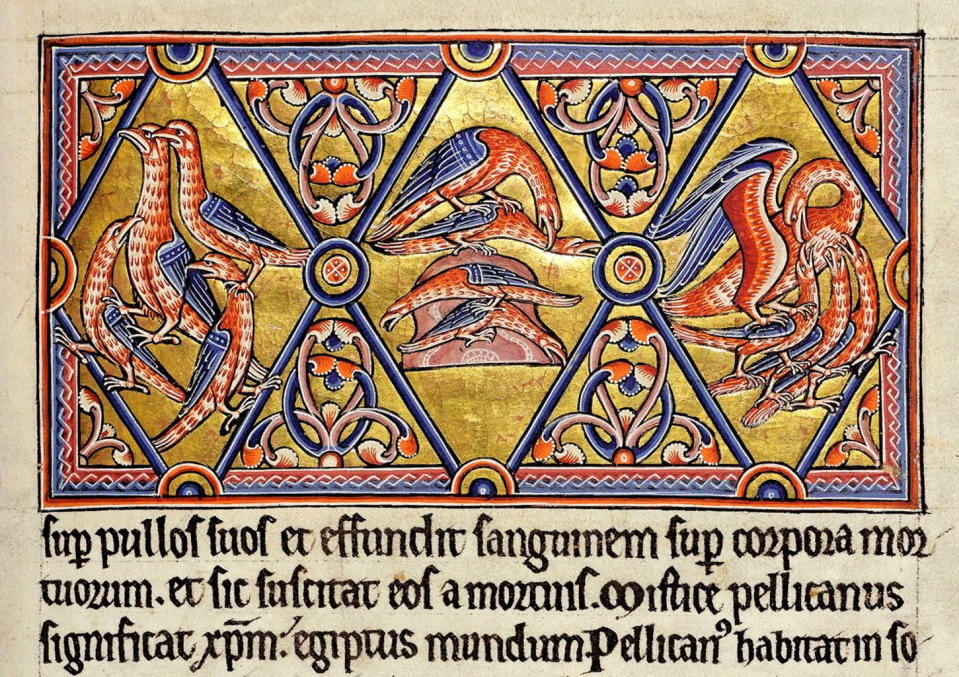 sup̱ pullos suos et effundit sanguinem sup̱ corpora mor
tuorum. et sic suscitat eos a mortuis. Mistice pellicanus
significat xp̄m. egiptus mundum. Pellicanꝰ habitat in so